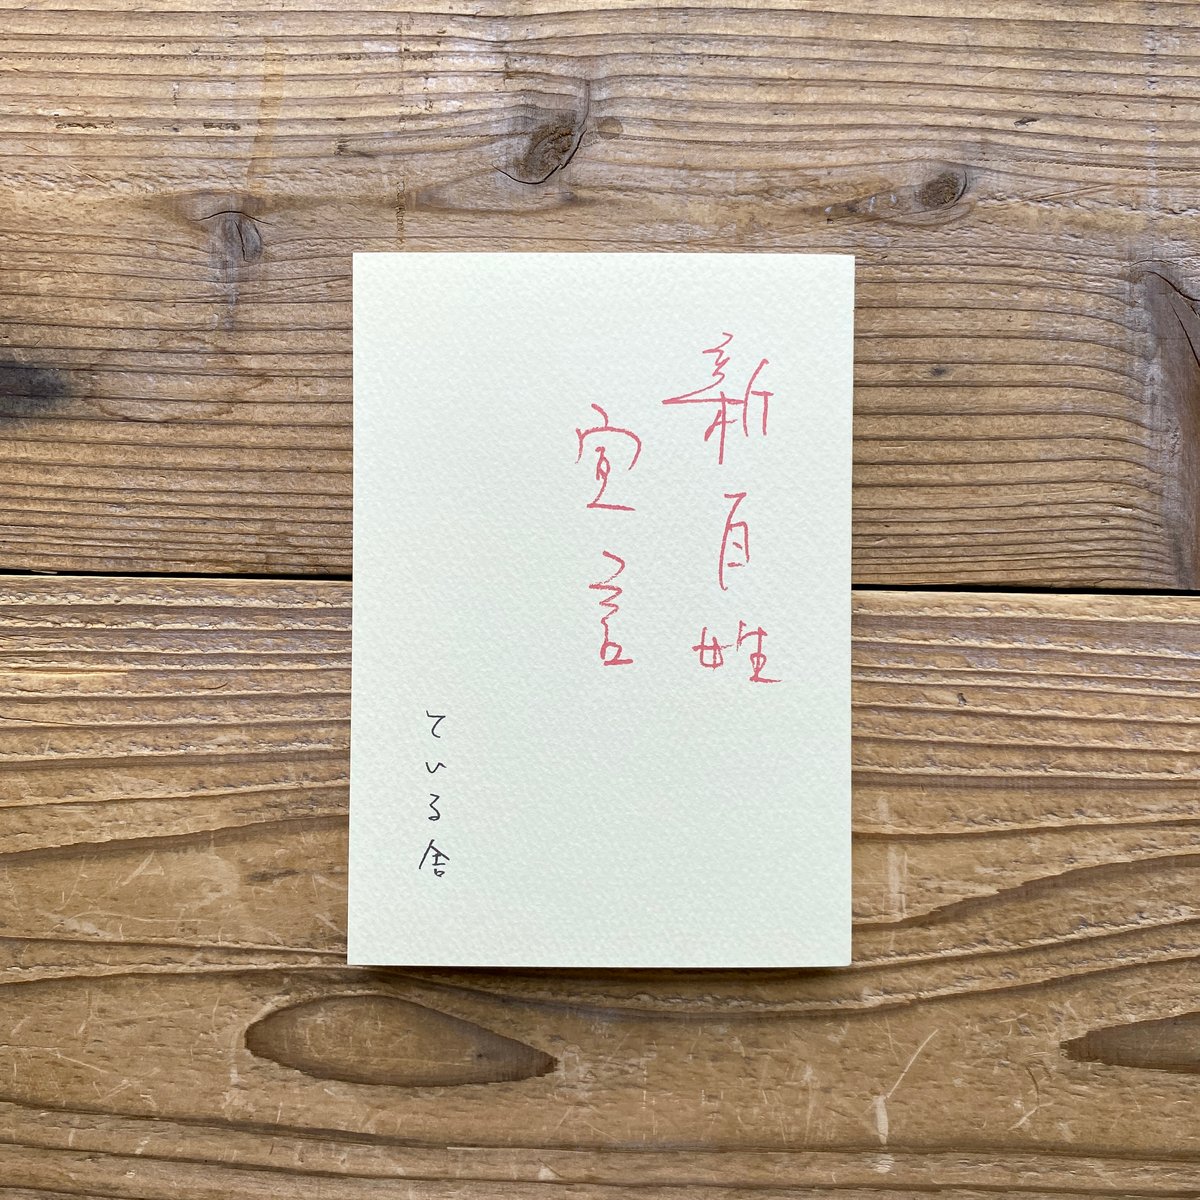 新百姓
宣言
ている舎